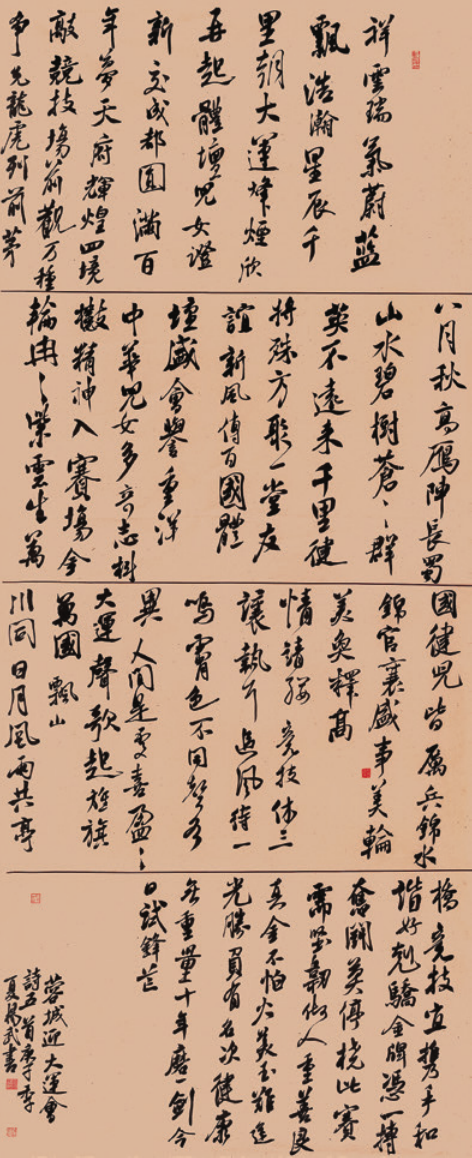 祥雲瑞氣蔚藍
飄浩瀚星辰千
里朝大運烽煙欣
再起體壇兒女證
新交成都圓滿百
年夢天府輝煌四境
敲競技場前觀万種
争先龍虎列前茅
八月秋高雁陣長蜀
山水碧樹蒼〻群
英不遠来千里健
将殊方聚一堂友
誼新風傳百國體
壇盛會譽重洋
中華兒女多奇志抖
擻精神入賽場金
輪冉〻紫雲生萬
國健兒皆厲兵錦水
錦官襄盛事美輪
美奐釋髙
情請纓競技休三
讓執竹追風待一
鳴膚色不同聲各
異人间是處喜盈〻
大運聲歌起旌旗
萬國飄山
川同日月風雨共亭
橋競技宜携手和
諧好剋驕金牌憑一搏
奮闘莫停橈比賽
需堅韌做人重善良
真金不怕火美玉難進
光勝負有名次健康
無重量十年磨一劍今
日試鋒芒
蓉城迎大運會
詩五首庚子季
夏楊武書